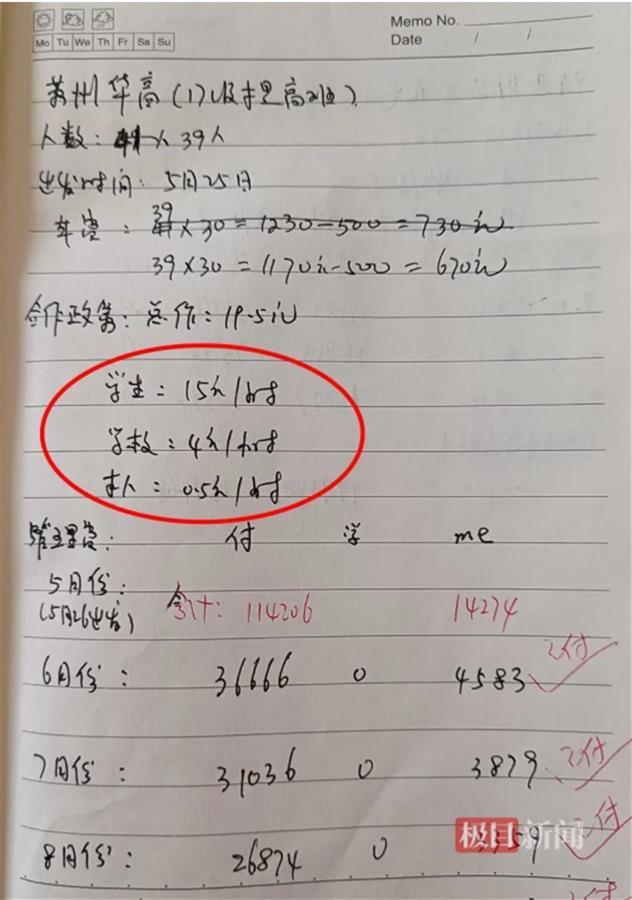 Memo No.
Mo Tu We Th Fr Sa Su
Date / /
苏州华高(17级提高班)
人数: 41人 39人
出发时间: 5月25日
车费: 41 39 ×30=1230-500=730元
39×30=1170元-500=670元
合作政策: 总价: 19.5元
学生: 15元/hr
学校: 4元/hr
本人: 0.5元/hr
管理费: 付 学 me
5月份:
(5月26出发) 合计: 114206 14274
6月份: 36666 0 4583 已付
7月份: 31036 0 3879 已付
8月份: 26874 0 3359 已付
极目新闻